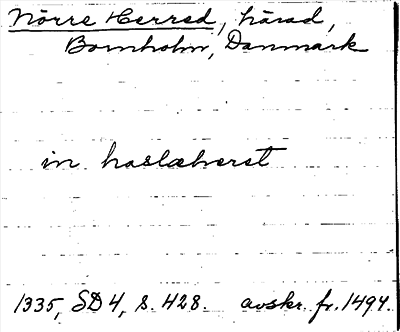 Nörre Herred, härad,
Bornholm, Danmark
in haslæherst
1335, SD 4, s. 428. avskr. fr. 1494.